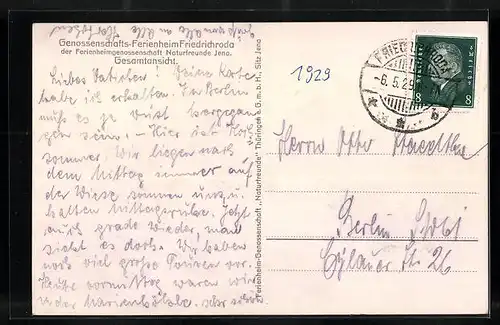 Genossenschafts-Ferienheim Friedrichroda
der Ferienheimgenossenschaft Naturfreunde Jena.
Gesamtansicht.
Liebes ! Deine Karte
habe ich erhalten. In Berlin
muß es ja wüst hergegan
gen sein. - Hier ist Hoch
sommer. Wir liegen nach
dem Mittag immer auf
der Wiese sonnen uns u.
halten Mittagsruhe. Jetzt
auch grade wieder, man
sieht es doch. Wir haben
noch viel große Touren vor.
Heute vormittag waren wir
in der Marienhöhle. sehr schön.
Ferienheim-Genossenschaft „Naturfreunde“ Thüringen e.G.m.b.H., Sitz Jena
1929
FRIEDRICHRODA
-6.5.29
b
8 8
Herrn Otto
Berlin
Eylauer Str. 26